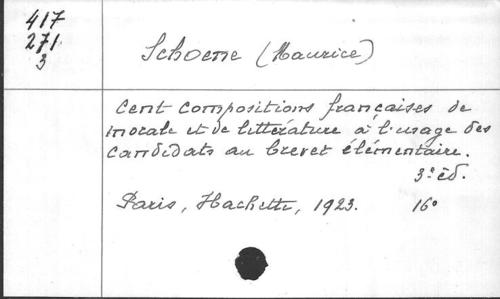 417
271
3
Schoene (Maurice)
Cent compositions françaises de
morale et de littérature à l'usage des
candidats au brevet élémentaire.
3e éd.
Paris, Hachette, 1923. 16°